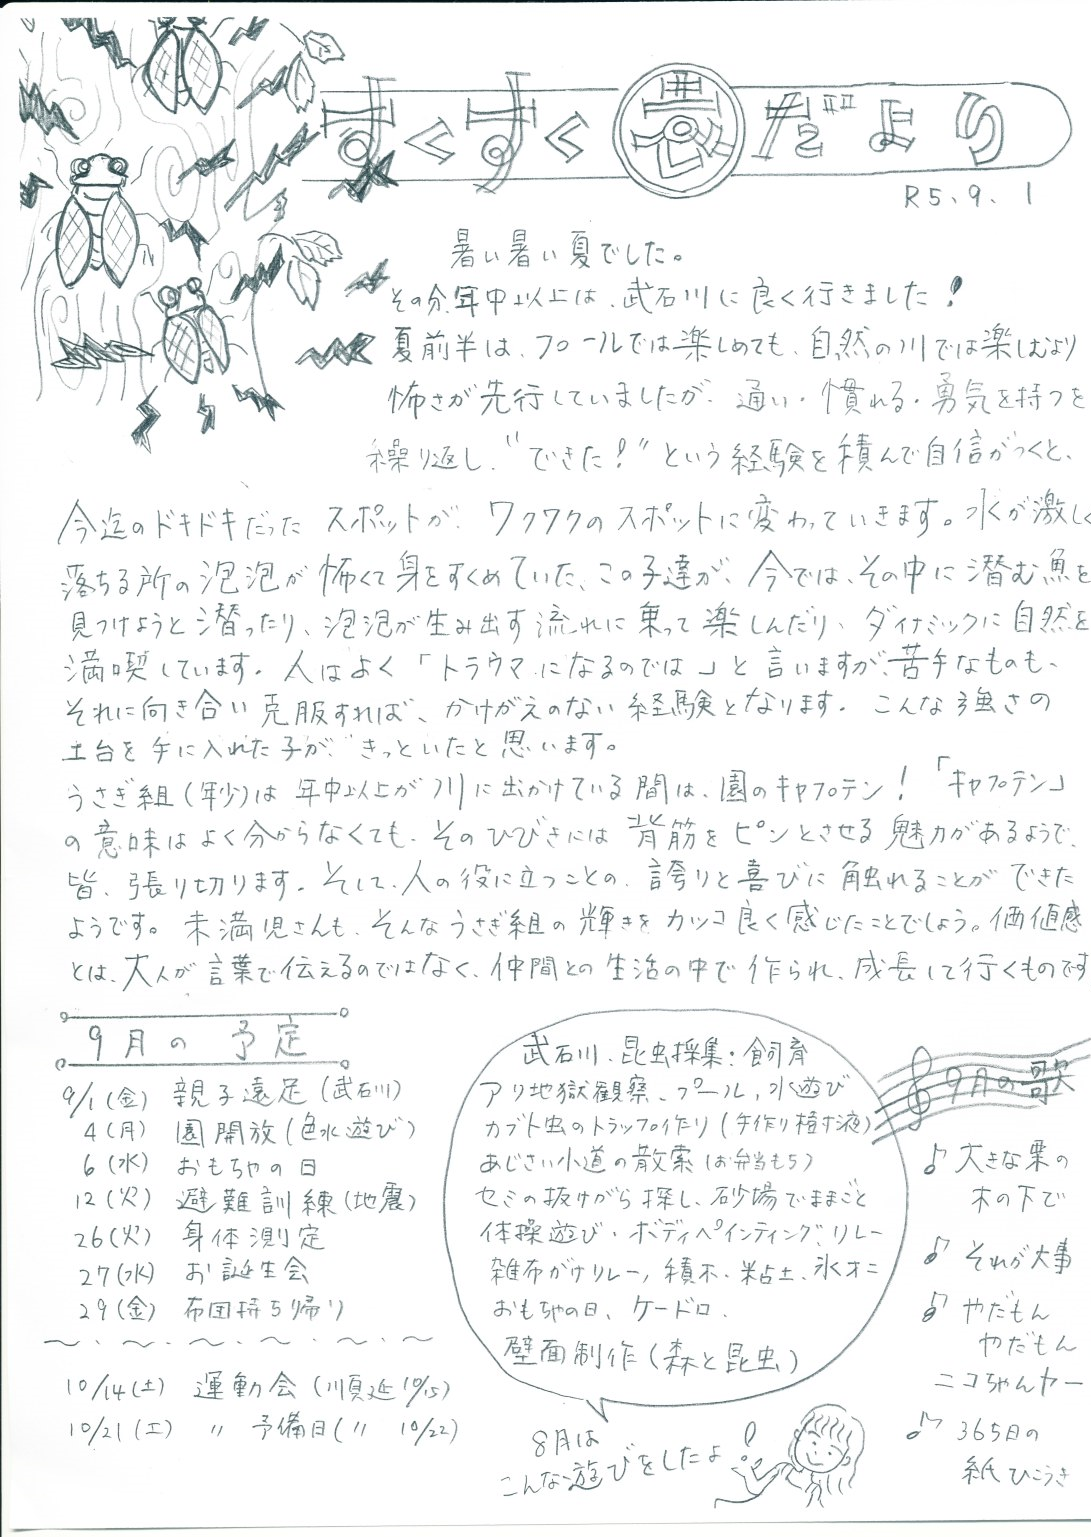 すくすく夢だより
R5.9.1
暑い暑い夏でした。
その分、年中以上は、武石川に良く行きました!
夏前半は、プールでは楽しめても、自然の川では楽しむより
怖さが先行していましたが、通い・慣れる・勇気を持つを
繰り返し、"できた!"という経験を積んで自信がつくと、
今迄のドキドキだった スポットが、ワクワクのスポットに変わっていきます。水が激しく
落ちる所の泡泡が怖くて身をすくめていた、この子達が、今では、その中に潜む魚を
見つけようと潜ったり、泡泡が生み出す流れに乗って楽しんだり、ダイナミックに自然を
満喫しています。人はよく「トラウマになるのでは」と言いますが、苦手なものも、
それに向き合い克服すれば、かけがえのない経験となります。こんな強さの
土台を手に入れた子が、きっといたと思います。
うさぎ組(年少)は 年中以上が川に出かけている間は、園のキャプテン!「キャプテン」
の意味はよく分からなくても、そのひびきには背筋をピンとさせる魅力があるようで、
皆、張り切ります。そして、人の役に立つことの、誇りと喜びに触れることができた
ようです。未満児さんも、そんなうさぎ組の輝きをカッコ良く感じたことでしょう。価値感
とは、大人が言葉で伝えるのではなく、仲間との生活の中で作られ、成長して行くものです
9月の予定
9/1(金) 親子遠足(武石川)
4(月) 園開放(色水遊び)
6(水) おもちゃの日
12(火) 避難訓練(地震)
26(火) 身体測定
27(水) お誕生会
29(金) 布団持ち帰り
10/14(土) 運動会(順延10/15)
10/21(土) 〃 予備日(〃 10/22)
武石川、昆虫採集・飼育
アリ地獄観察、プール、水遊び
カブト虫のトラップ作たり(手作り樹液)
あじさい小道の散索(お弁当もち)
セミの抜けがら探し、砂場でままごと
体操遊び・ボディペインティング、リレー
雑布がけリレー、積木・粘土、氷オニ
おもちゃの日、ケードロ、
壁面制作(森と昆虫)
8月は
こんな遊びをしたよ!
9月の歌
♪ 大きな栗の
木の下で
♪ それが大事
♪ やだもん
やだもん
ニコちゃんヤー
♪ 365日の
紙ひこうき